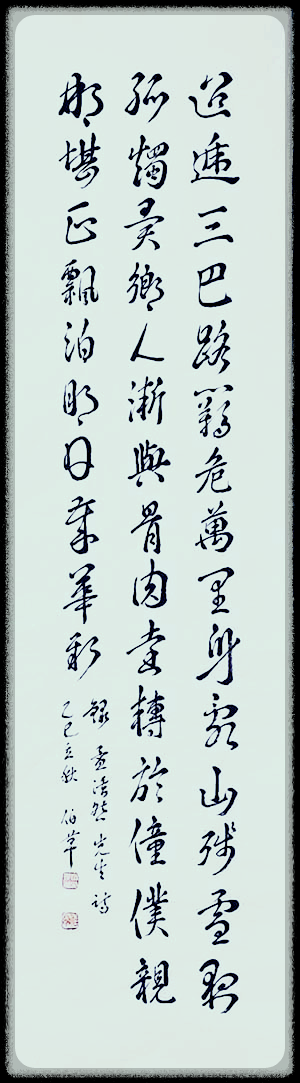 迢遞三巴路羈危萬里身亂山殘雪夜
孤燭異鄉人漸與骨肉遠轉於僮僕親
那堪正飄泊明日歲華新
錄孟浩然先生詩
乙巳立秋 伯草